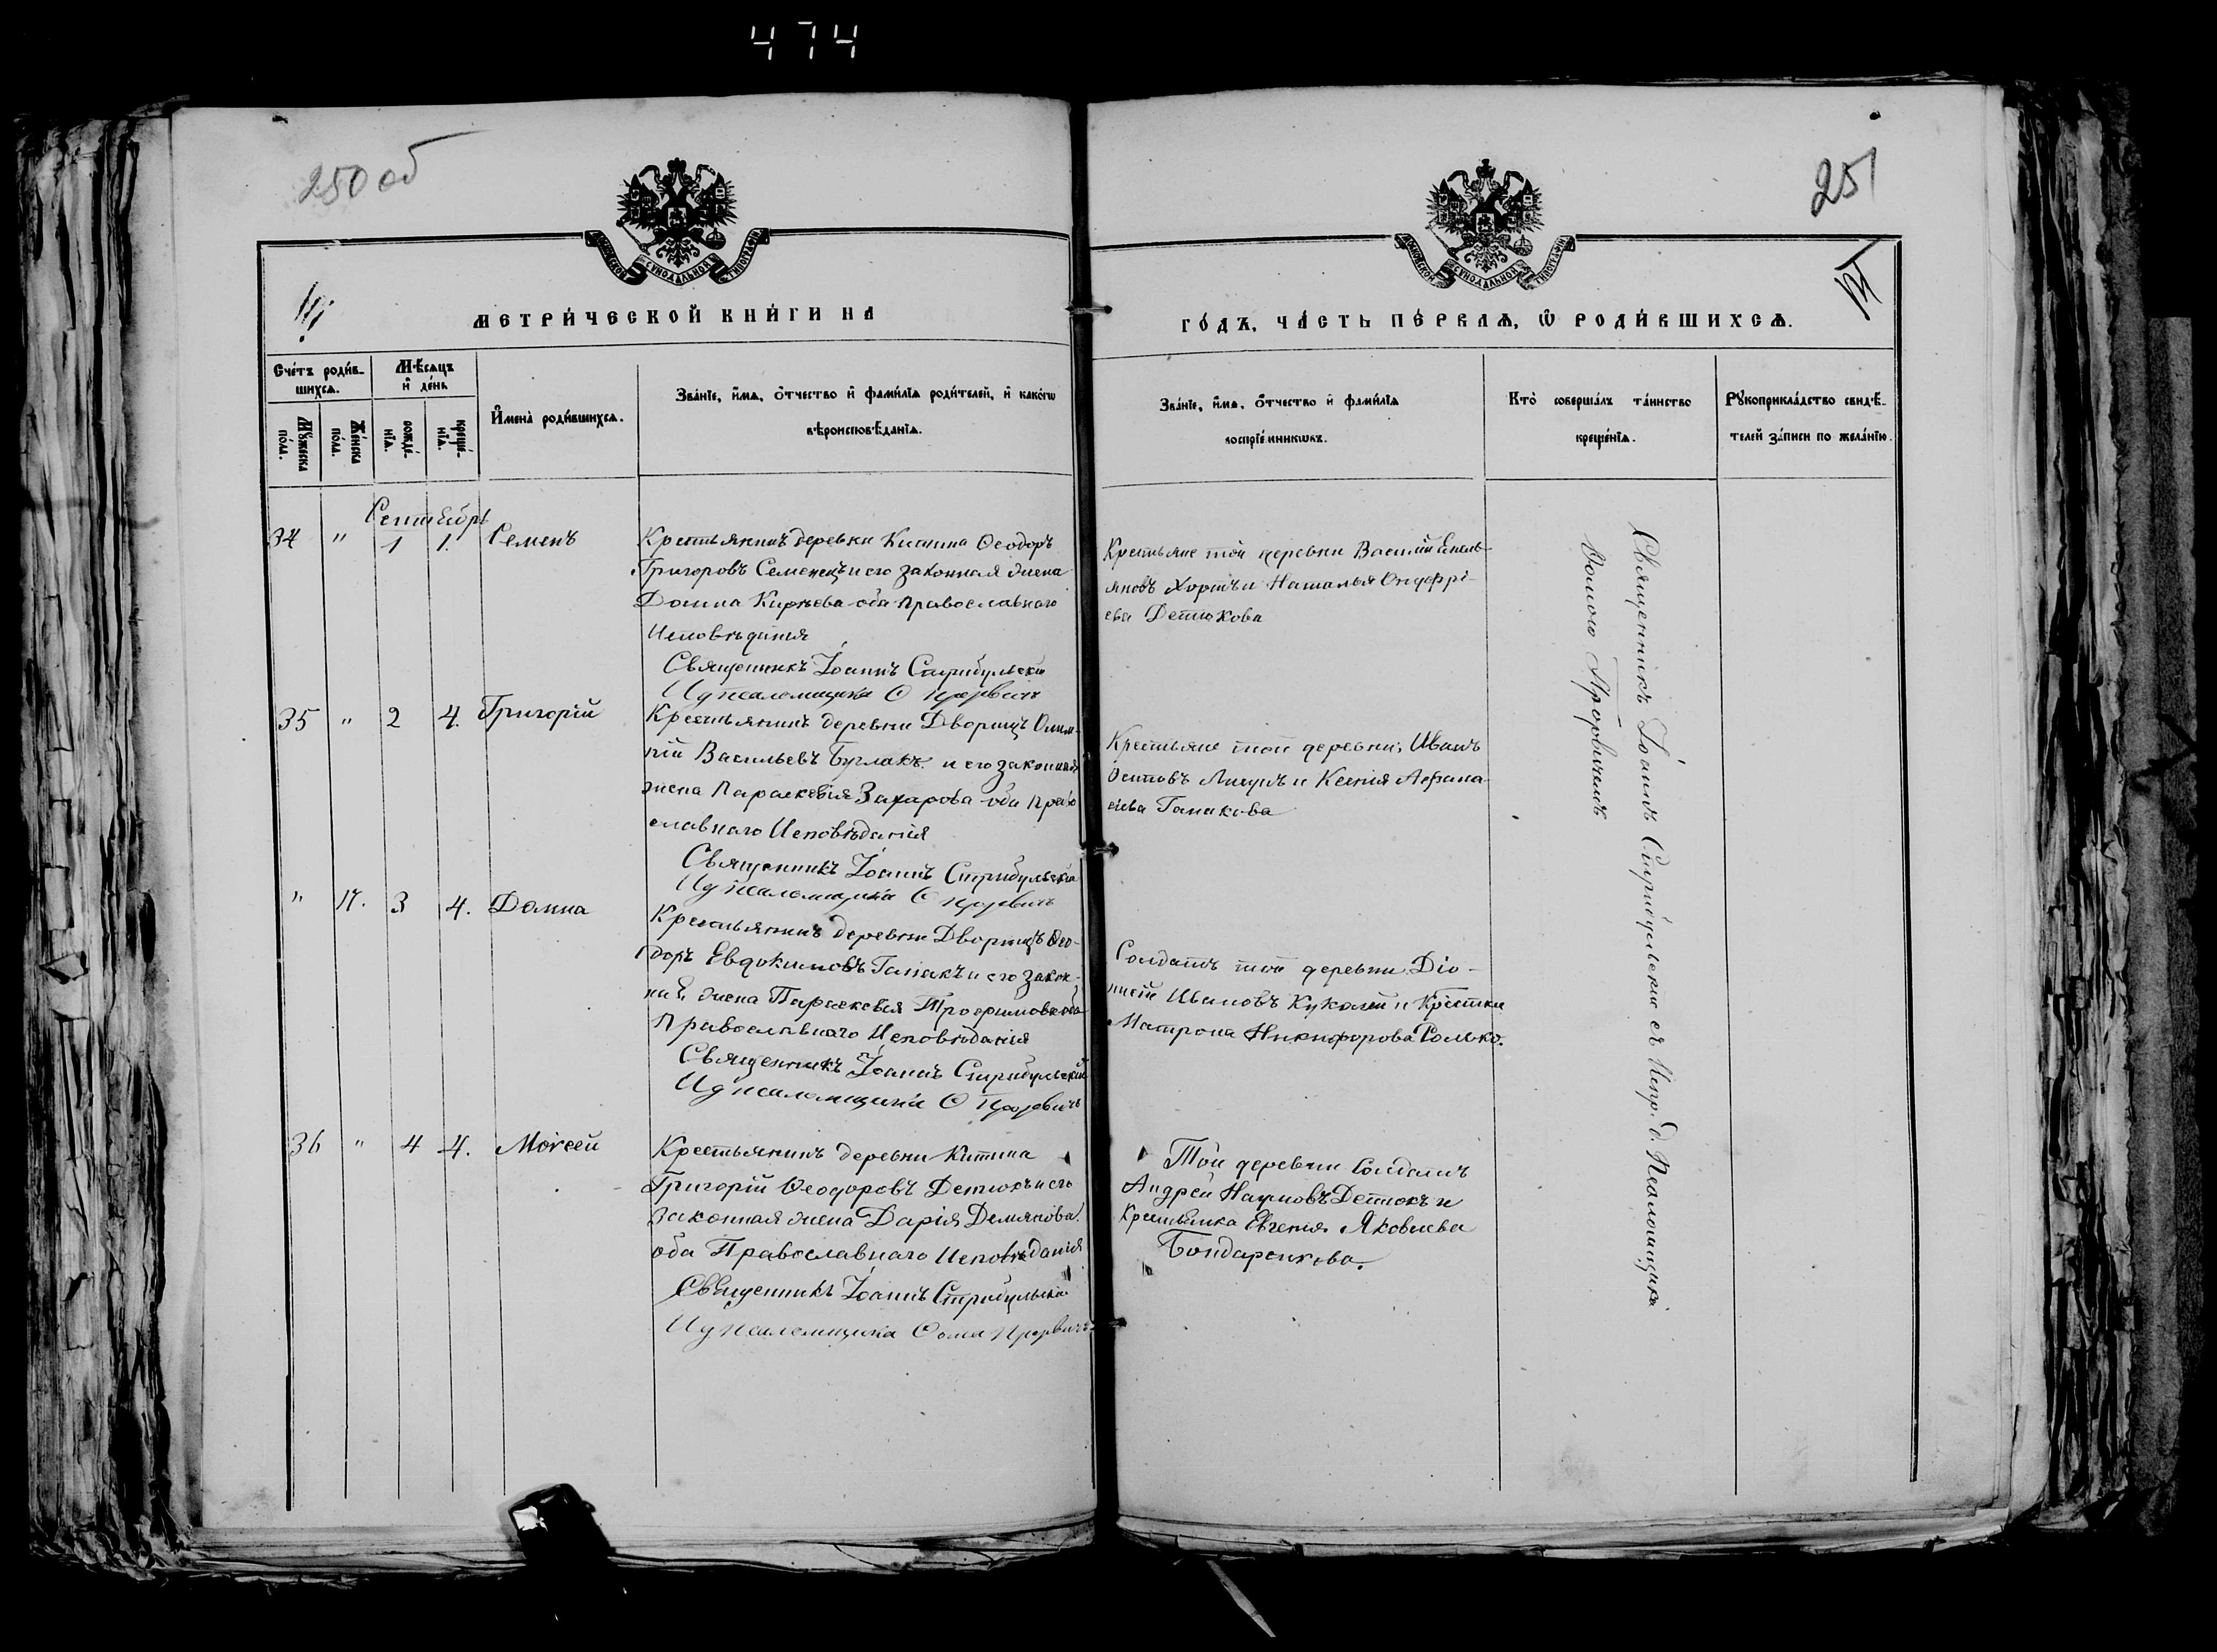 474
250 об
251
МЕТРИ́ЧЕСКОЙ КНИ́ГИ НА
ГО́ДЪ, ЧА́СТЬ ПЕ́РВАѦ, Ѿ РОДИ́ВШИХСѦ.
Сче́тъ роди́в-
шихсѧ.
Мѣ́сѧцъ
и҆ де́нь
Мꙋ́жеска
по́ла.
Же́нска
по́ла.
рожде́-
нїѧ.
креще́-
нїѧ.
И҆мена̀ роди́вшихсѧ.
Зва́нїе, и҆́мѧ, ѻ҆́тчество и҆ фами́лїѧ роди́телей, и҆ како́гѡ
вѣроисповѣ́данїѧ.
Зва́нїе, и҆́мѧ, ѻ҆́тчество и҆ фами́лїѧ
воспрїе́мникѡвъ.
Кто̀ соверша́лъ та́инство
креще́нїѧ.
Рꙋкоприкла́дство свидѣ́-
телей за́писи по жела́нїю.
Сентября
34 " 1 1. Семенъ
Крестьянинъ деревни Китина Ѳеодоръ
Григоровъ Семенецъ и его законная жена
Домна Кирѣева оба православнаго
Исповѣданія
Священникъ Іоаннъ Стрибульскій
И д псаломщика Ѳ
Крестьяне той деревни Василій Емель-
яновъ Хортъ и Наталья Онуфрі-
ева Детюкова
35 " 2 4. Григорій
Крестьянинъ деревни Дворищъ Олим-
пій Васильевъ Буглакъ и его законная
жена Параскевія Захарова оба право
славнаго Исповѣданія
Священникъ Іоаннъ Стрибульскій
И д псаломщика Ѳ
Крестьяне той деревни, Иванъ
Осиповъ и Ксенія Афана
сіева Ганакова
" 17. 3 4. Домна
Крестьянинъ деревни Дворищъ Ѳео-
доръ Евдокимовъ Ганакъ и его закон-
ная жена Параскевія Трофимова оба
Православнаго Исповѣданія
Священникъ Іоаннъ Стрибульскій
И д псаломщика Ѳ
Солдатъ той деревни Діо-
нисій Ивановъ Куколъ и Крестьян
Матрона Никифорова Солько.
36 " 4 4. Моісей
Крестьянинъ деревни Китина
Григорій Ѳеодоровъ Детюкъ и его
законная жена Дарія Демянова
оба Православнаго Исповѣданія
Священникъ Іоаннъ Стрибульскій
И д псаломщика Ѳома
Той деревни Солдатъ
Андрей Наумовъ Детюкъ и
Крестьянка Евгенія Яковлева
Бондаренкова.
Священникъ Іоаннъ Стрибульскій съ Испр. д. Псаломщика
Ѳомою